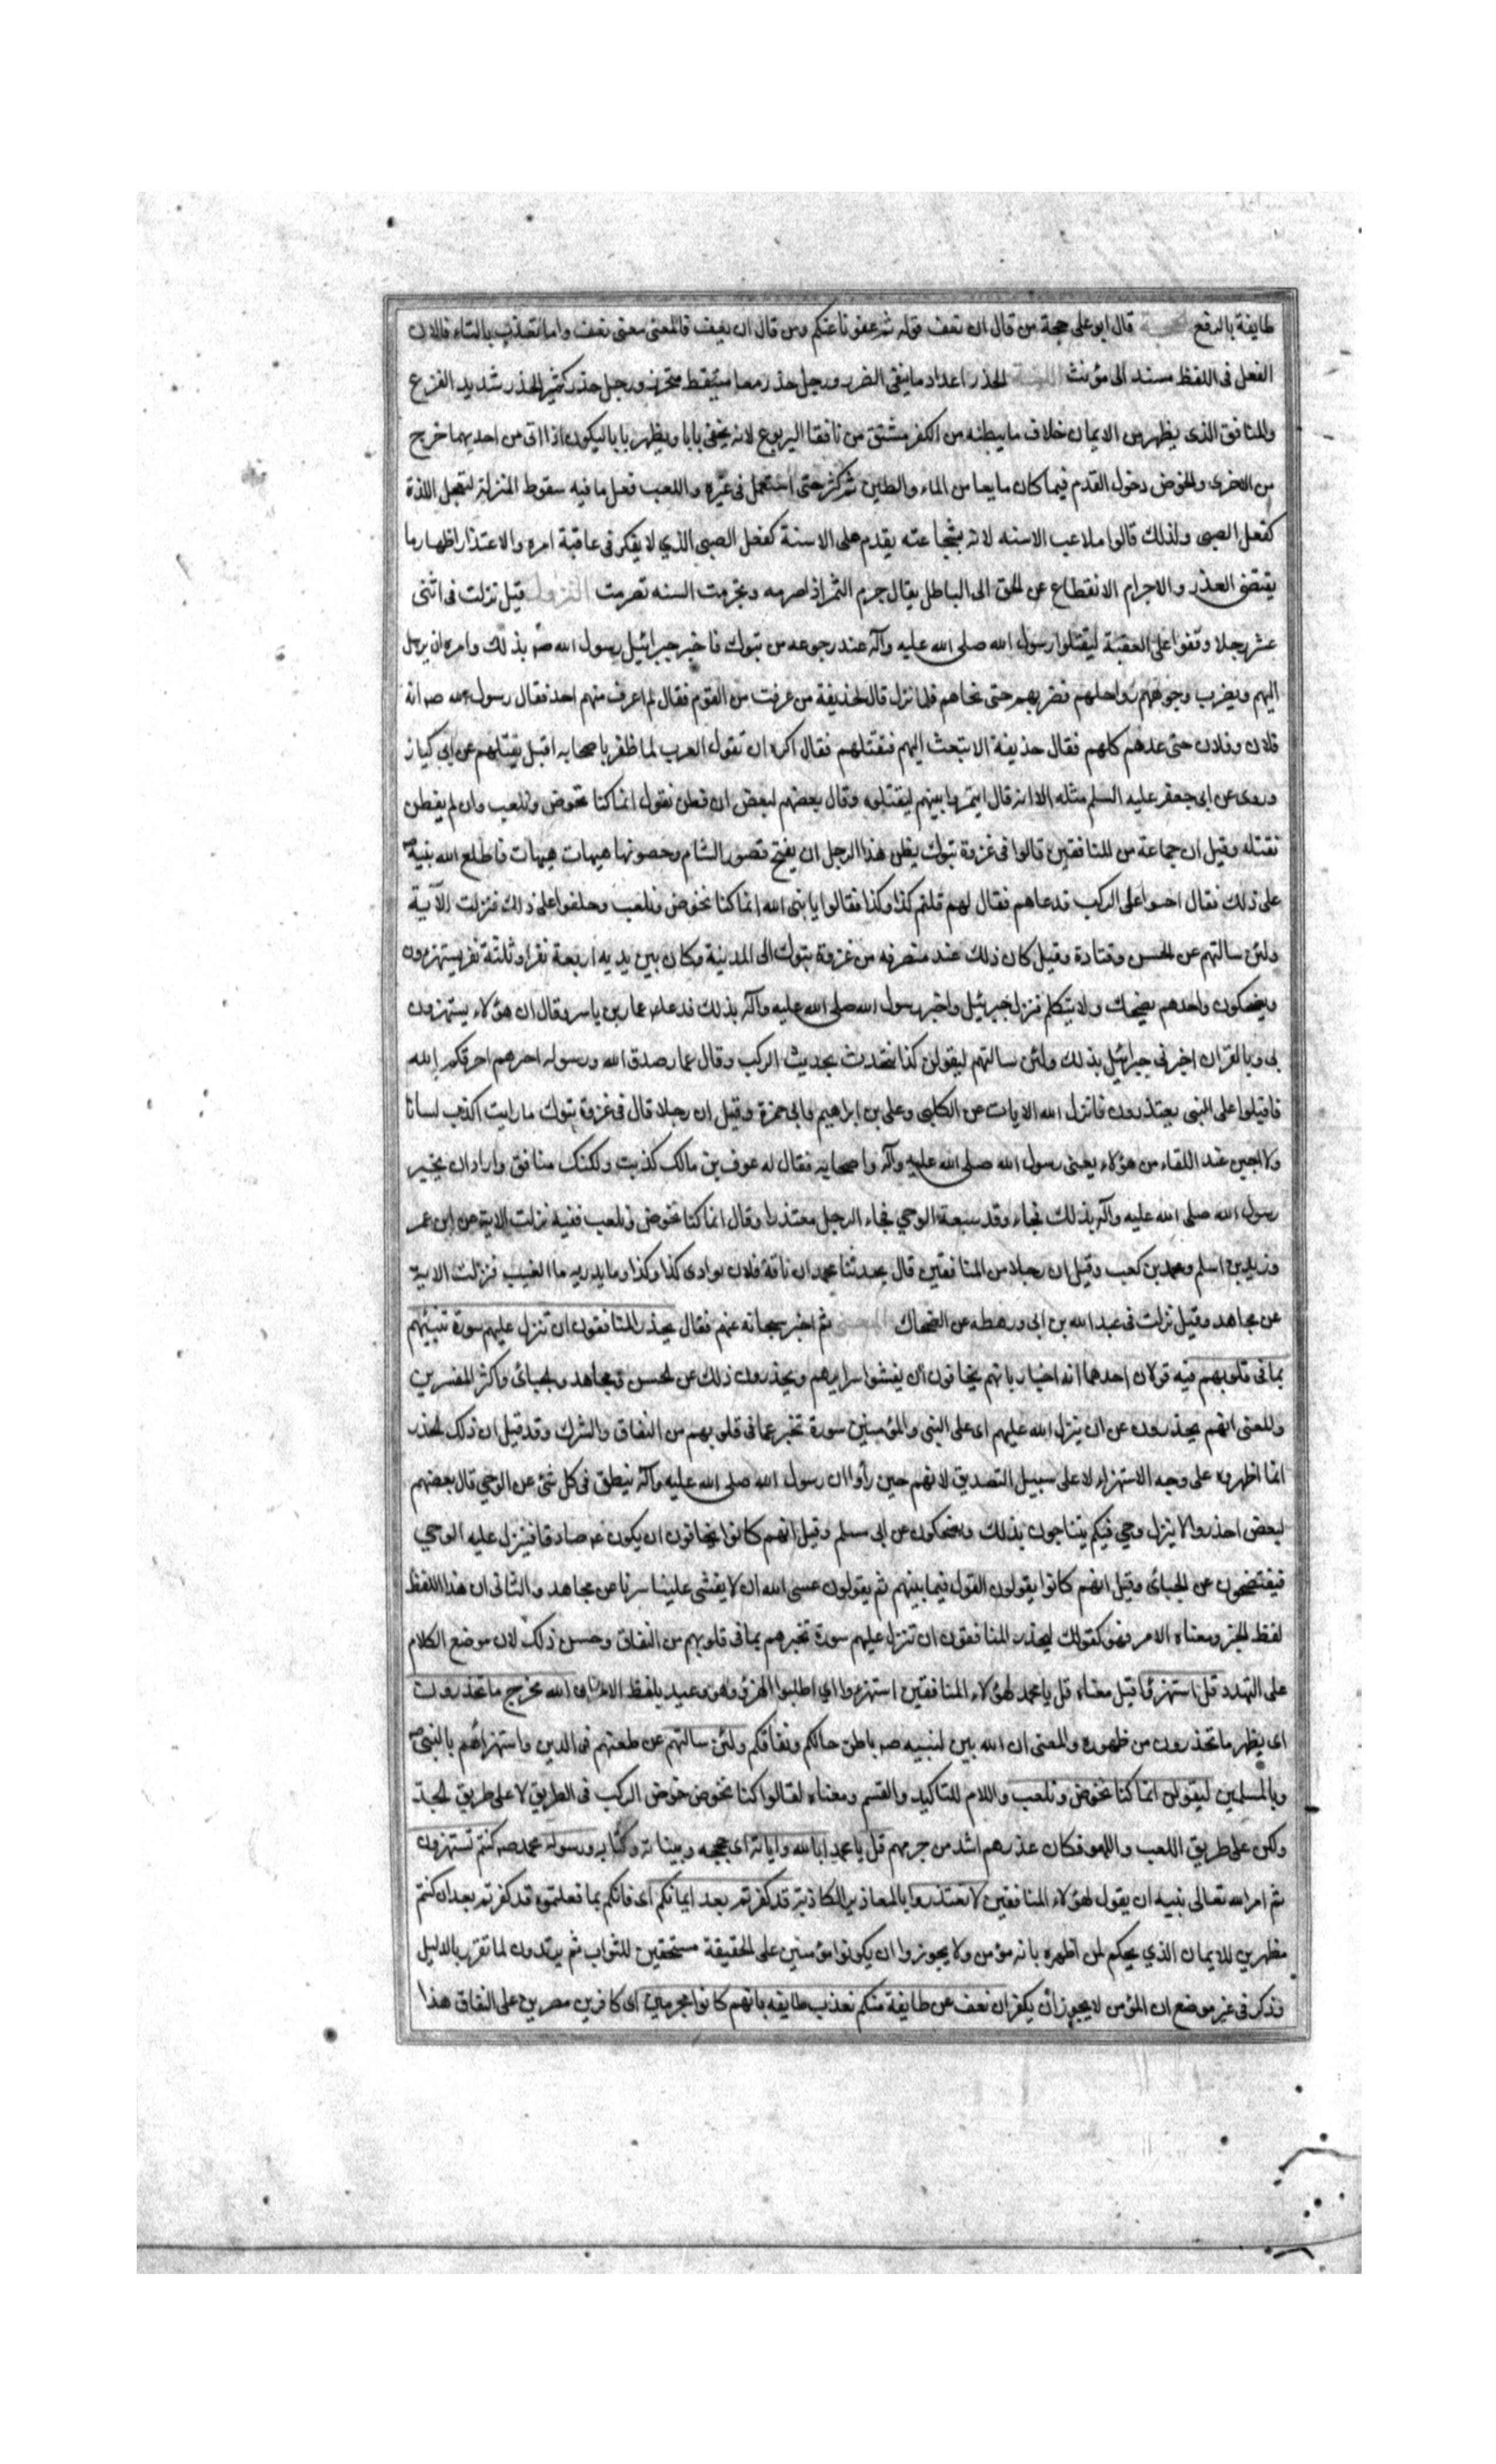 طايفة بالرفع الحجة قال ابو على حجة من قال ان نعف قوله ثم عفونا عنكم ومن قال ان يعف فالمعنى معنى نعف واما تعذب بالتاء فلان
الفعل فى اللفظ مسند الى مؤنث اللغة الحذر اعداد ما يتقى الضرر ورجل حذر متيقظ متحرز ورجل حذر كثير الحذر شديد الفزع
والمنافق الذى يظهر من الايمان خلاف ما يبطنه من الكفر مشتق من نافقا اليربوع لانه يخفى بابا ويظهر بابا ليكون اذا اتى من احديهما خرج
من الاخرى والخوض دخول القدم فيما كان مايعا من الماء والطين ثم كثر حتى استعمل فى غيره واللعب فعل ما فيه سقوط المنزلة لتعجل اللذة
كفعل الصبى ولذلك قالوا ملاعب الاسنه لانه بشجاعته يقدم على الاسنة كفعل الصبى الذي لا يفكر فى عاقبة امره والاعتذار اظهار ما
يقتضى العذر والاجرام الانقطاع عن الحق الى الباطل يقال جرم الثمر اذا صرمه وتجرمت السنه تصرمت النزول قيل نزلت فى اثنى
عشر رجلا وقفوا على العقبة ليقتلوا رسول الله صلى الله عليه وآله عند رجوعه من تبوك فاخبر جبرائيل رسول الله ص بذلك وامره ان يرسل
اليهم ويضرب وجوههم رواحلهم فضربهم حتى نحاهم فلما نزل قال لحذيفة من عرفت من القوم فقال لم اعرف منهم احد فقال رسول الله ص انه
فلان وفلان حتى عدهم كلهم فقال حذيفة الا تبعث اليهم فتقتلهم فقال اكره ان تقول العرب لما ظفر باصحابه اقبل يقتلهم عن ابى كيان
وروى عن ابى جعفر عليه السلم مثله الا انه قال ايتمروا بينهم ليقتلوه وقال بعضهم لبعض ان فطن نقول انما كنا نخوض ونلعب وان لم يفطن
نقتله وقيل ان جماعة من المنافقين قالوا فى غزوة تبوك يظن هذا الرجل ان يفتح قصور الشام وحصونها هيهات هيهات فاطلع الله نبيه ص
على ذلك فقال احبسوا على الركب فدعاهم فقال لهم قلتم كذا وكذا فقالوا يا نبى الله انما كنا نخوض ونلعب وحلفوا على ذلك فنزلت الآية
ولئن سالتهم عن الحسن وقتادة وقيل كان ذلك عند منصرفه من غزوة تبوك الى المدينة وكان بين يديه اربعة نفر او ثلثة نفر يستهزءون
ويضحكون واحدهم يضحك ولا يتكلم فنزل جبرئيل واخبر رسول الله صلى الله عليه وآله بذلك فدعا عمار بن ياسر وقال ان هؤلاء يستهزءون
بى وبالقران اخبرنى جبرائيل بذلك ولئن سالتهم ليقولن كنا نتحدث بحديث الركب وقال عمار صدق الله ورسوله احترقتم احرقكم الله
فاقبلوا على النبى يعتذرون فانزل الله الايات عن الكلبى وعلى بن ابراهيم وابى حمزة وقيل ان رجلا قال فى غزوة تبوك ما رايت اكذب لسانا
ولا اجبن عند اللقاء من هؤلاء يعنى رسول الله صلى الله عليه وآله واصحابه فقال له عوف بن مالك كذبت ولكنك منافق واراد ان يخبر
رسول الله صلى الله عليه وآله بذلك فجاء وقد سبقه الوحي فجاء الرجل معتذرا وقال انما كنا نخوض ونلعب ففيه نزلت الاية عن ابن عمر
وزيد بن اسلم ومحمد بن كعب وقيل ان رجلا من المنافقين قال يحدثنا محمد ان ناقة فلان بوادى كذا وكذا وما يدريه ما الغيب فنزلت الاية
عن مجاهد وقيل نزلت فى عبد الله بن ابى ورهطه عن الضحاك المعنى ثم اخبر سبحانه عنهم فقال يحذر المنافقون ان تنزل عليهم سورة تنبئهم
بما فى قلوبهم فيه قولان احدهما انه اخبار بانهم يخافون ان يفشوا سرايرهم ويحذرون ذلك عن الحسن ومجاهد والجبائى واكثر المفسرين
والمعنى انهم يحذرون من ان ينزل الله عليهم اى على النبى والمؤمنين سورة تخبر عما فى قلوبهم من النفاق والشرك وقد قيل ان ذلك الحذر
انما اظهروه على وجه الاستهزاء لا على سبيل التصديق لانهم حين رأوا ان رسول الله صلى الله عليه وآله ينطق فى كل شئ عن الوحي قال بعضهم
لبعض احذروا الا ينزل وحي فيكم يتناجون بذلك ويضحكون عن ابى مسلم وقيل انهم كانوا يخافون ان يكون ع صادقا فينزل عليه الوحي
فيفتضحون عن الجبائى وقيل انهم كانوا يقولون القول فيما بينهم ثم يقولون عسى الله ان لا يفشى علينا سرنا عن مجاهد والثانى ان هذا اللفظ
لفظ الخبر ومعناه الامر فهو كقولك ليحذر المنافقون ان تنزل عليهم سورة تخبرهم بما فى قلوبهم من النفاق وحسن ذلك لان موضع الكلام
على التهدد قل استهزؤا قيل معناه قل يا محمد لهؤلاء المنافقين استهزءوا اي اطلبوا الهزؤ وهو وعيد بلفظ الامر ان الله مخرج ما تحذرون
اى يظهر ما تحذرون من ظهوره والمعنى ان الله يبين لنبيه ص باطن حالكم ونفاقكم ولئن سالتهم عن طعنهم فى الدين واستهزائهم بالنبى ص
وبالمسلمين ليقولن انما كنا نخوض ونلعب واللام للتاكيد والقسم ومعناه لقالوا كنا نخوض خوض الركب فى الطريق لا على طريق الجد
ولكن على طريق اللعب واللهو فكان عذرهم اشد من جرمهم قل يا محمد ابالله واياته اى حججه وبيناته وكتابه ورسوله محمد ص كنتم تستهزءون
ثم امر الله تعالى نبيه ان يقول لهؤلاء المنافقين لا تعتذروا بالمعاذير الكاذبة قد كفرتم بعد ايمانكم اى فانكم بما فعلتموه قد كفرتم بعد ان كنتم
مظهرين للايمان الذي يحكم لمن اظهره بانه مؤمن ولا يجوز ان يكونوا مؤمنين على الحقيقة مستحقين للثواب ثم يرتدون لما تقرر بالدليل
وذكر فى غير موضع ان المؤمن لا يجوز ان يكفر ان نعف عن طايفة منكم نعذب طايفه بانهم كانوا مجرمين اى كافرين مصرين على النفاق هذا